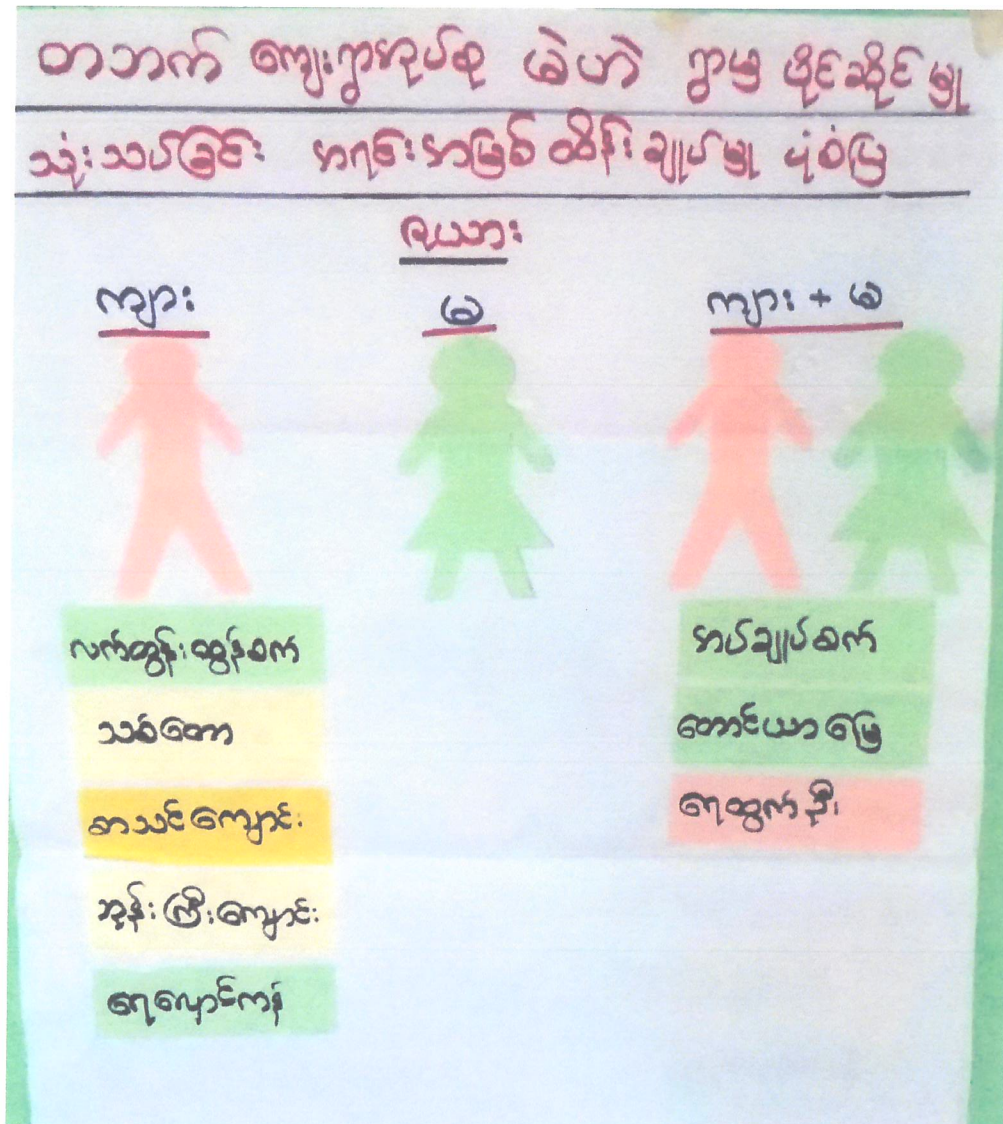 တဘက် ကျေးရွာအုပ်စု မဲဟဲ ရွာမှ ပိုင်ဆိုင်မှု
သုံးသပ်ခြင်း အရင်းအမြစ်ထိန်းချုပ်မှု ပုံစံပြ
ဇယား
ကျား
မ
ကျား + မ
လက်တွန်းထွန်စက်
သစ်တော
စာသင်ကျောင်း
ဘုန်းကြီးကျောင်း
ရေလှောင်ကန်
အပ်ချုပ်စက်
တောင်ယာမြေ
ရေထွက်ဦး